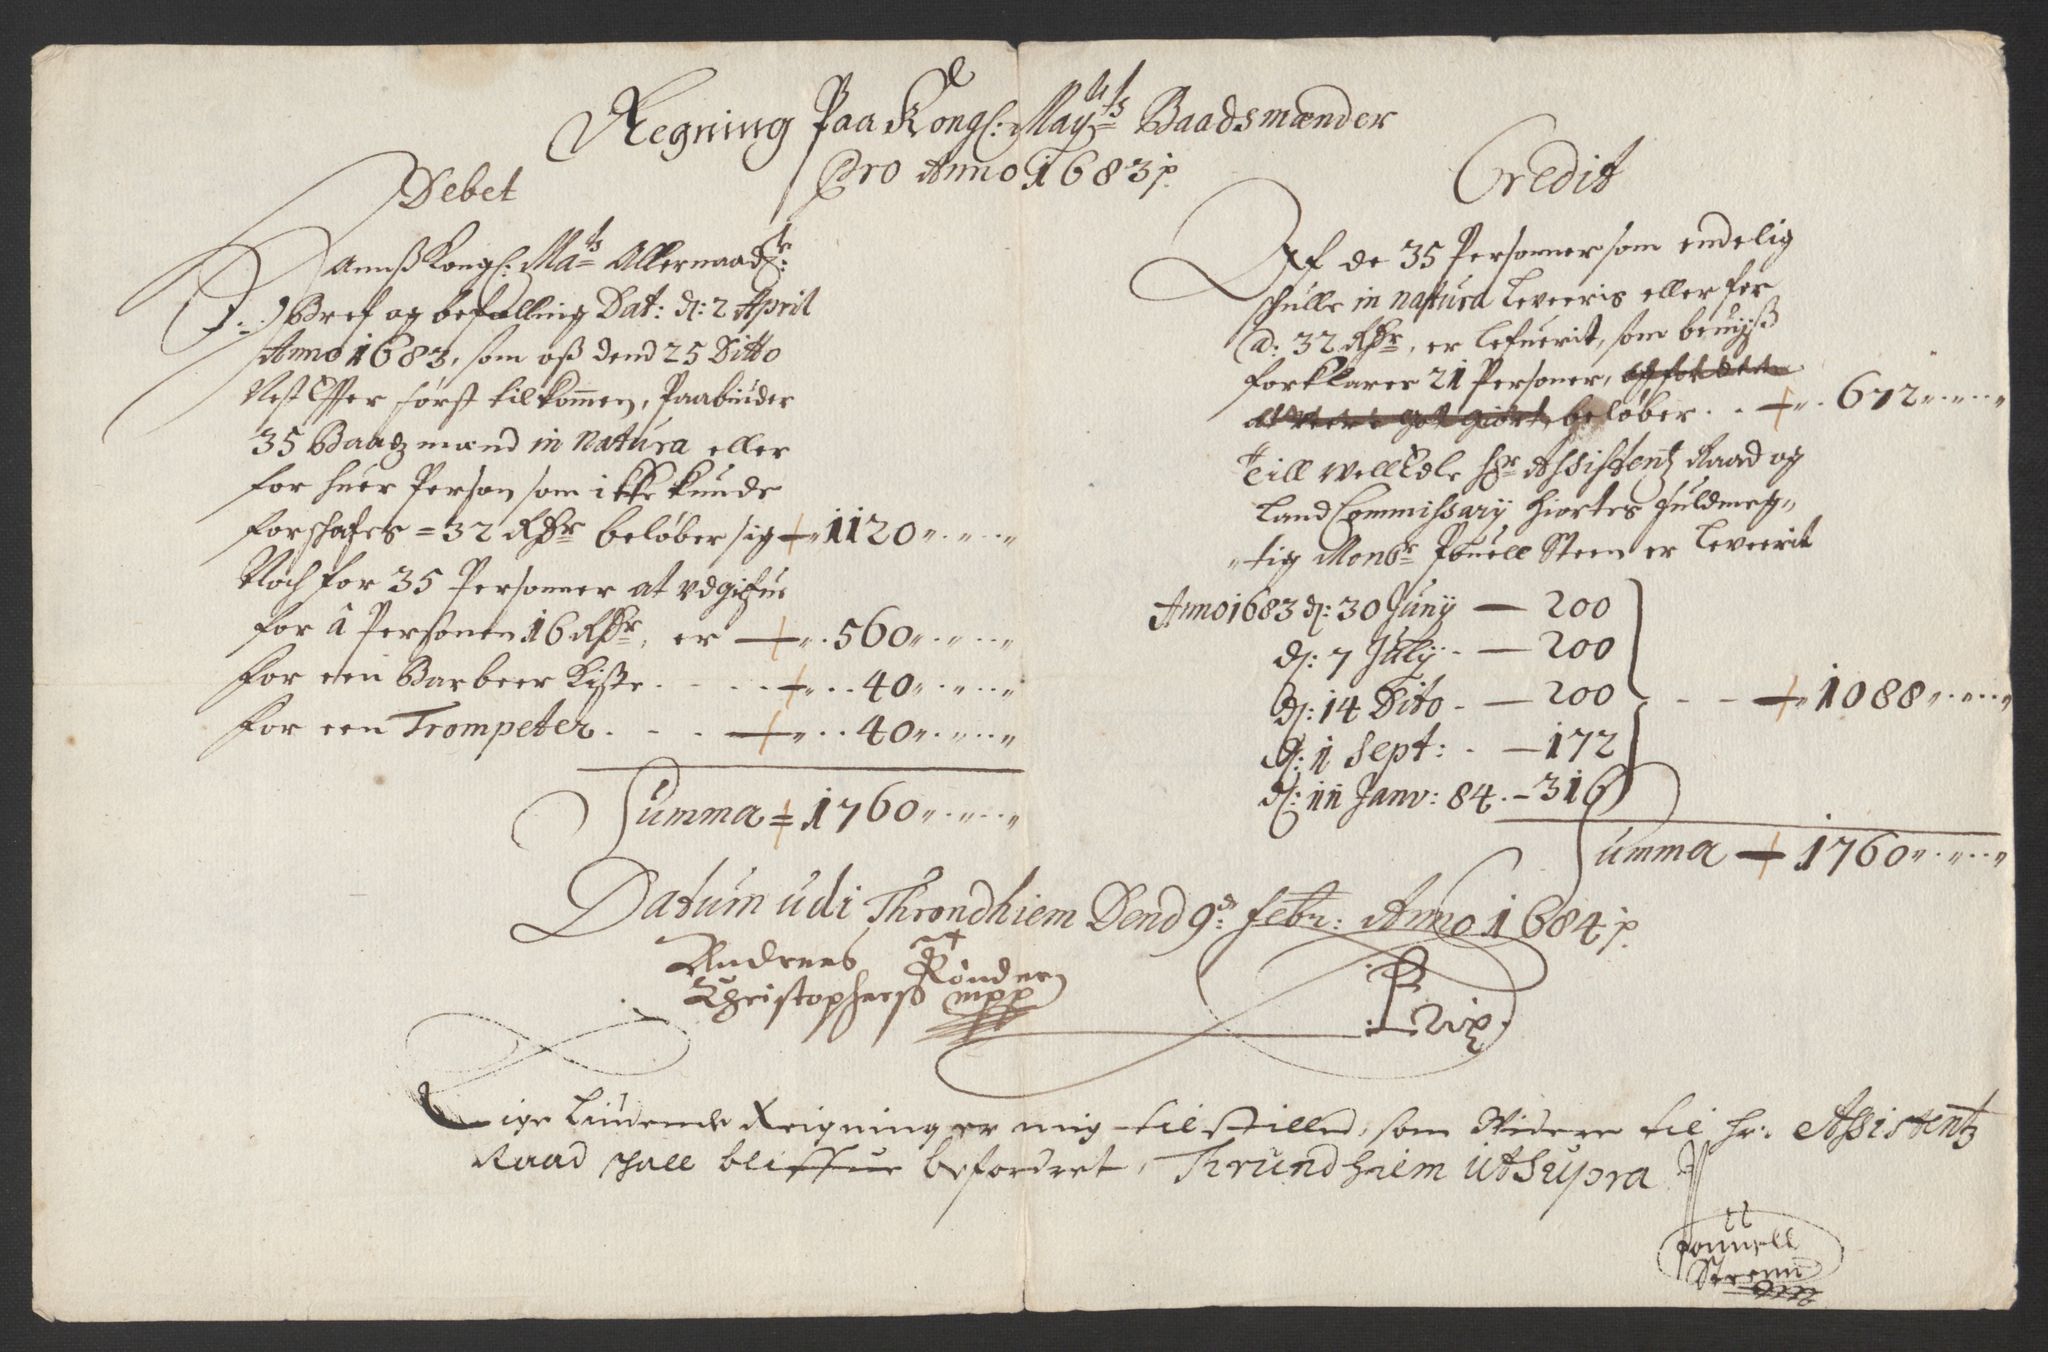 Regning Paa Kongl: Mayts Baadsmænder
Pro Anno 1683 p.
Debet
Hanns Kongl: Mats Allernaadl:
Bref og befalling Dat: d: 2 April
Anno 1683, som oß dend 25 Ditto
Nest Effter først tilkommen, Paabiuder
35 Baadzmænd in Natura eller
for huer Person som ikke kunde
forschafes = 32 Rdr beløber sig 1120
Noch for 35 Personner at vdgifue
for â Personen 16 Rdr, er 560
for een Barbeer Kiste 40
for een Trompeter 40
Summa = 1760
Credit
Af de 35 Personner som endelig
schulle in natura Leveeris eller for
a: 32 Rdr, er lefuerit, som beuiiß
forklarer 21 Personer,
beløber 672
Till WellEdle Hr Assistentz Raad og
Land Commissary Hiortes fuldmeg-
tig Monsr Jouell Steen er Leveerit
Anno 1683 d: 30 Junij — 200
d: 7 Julij — 200
d: 14 Dito — 200
d: 1 Sept: — 172
d: 11 Janv: 84 — 316
1088
Summa 1760
Datum udi Throndhiem Dend 9: Febr: Anno 1684 p.
Andrees Rønder
Christophersß mpp
Lige Liudende Reigning er mig tilstilled, som Videre til Hr. Assistentz
Raad shall bliffue befordret, Thrundhiem ut Supra
Jouell
Steenn